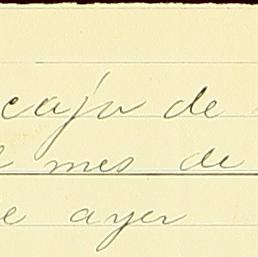 caja de
mes de
e ayer